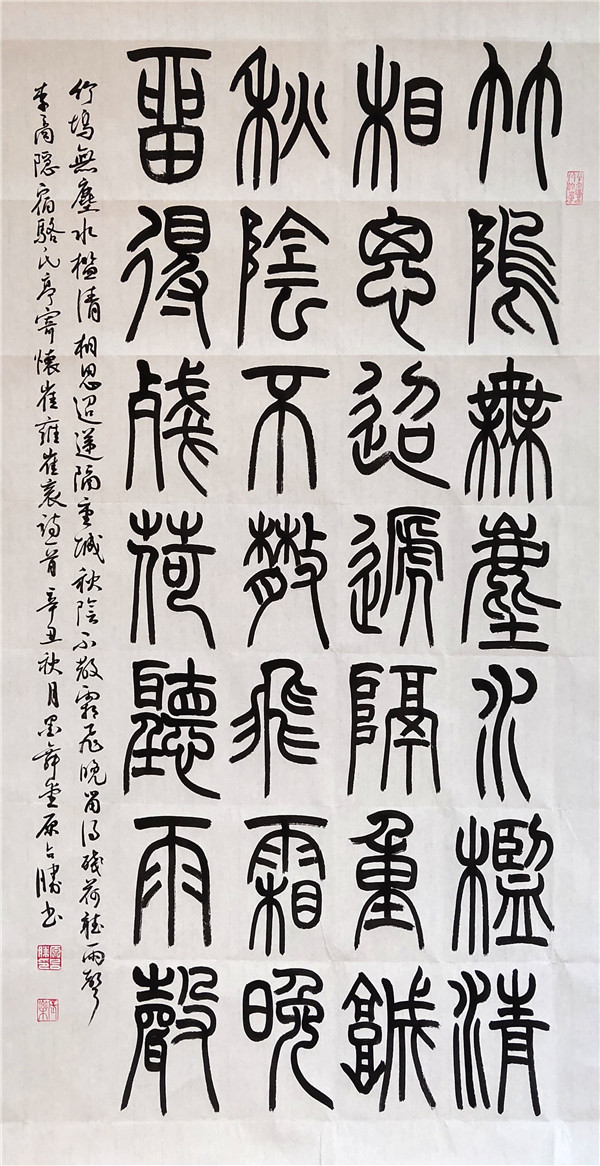 竹隖無塵水檻清
相思迢遞隔重城
秋陰不散飛霜晚
留得殘荷聽雨聲
竹塢無塵水檻清相思迢遞隔重城秋陰不散霜飛晚留得殘荷聽雨聲
李商隱宿駱氏亭寄懷崔雍崔袞詩一首辛丑秋月墨舞堂原占勝书